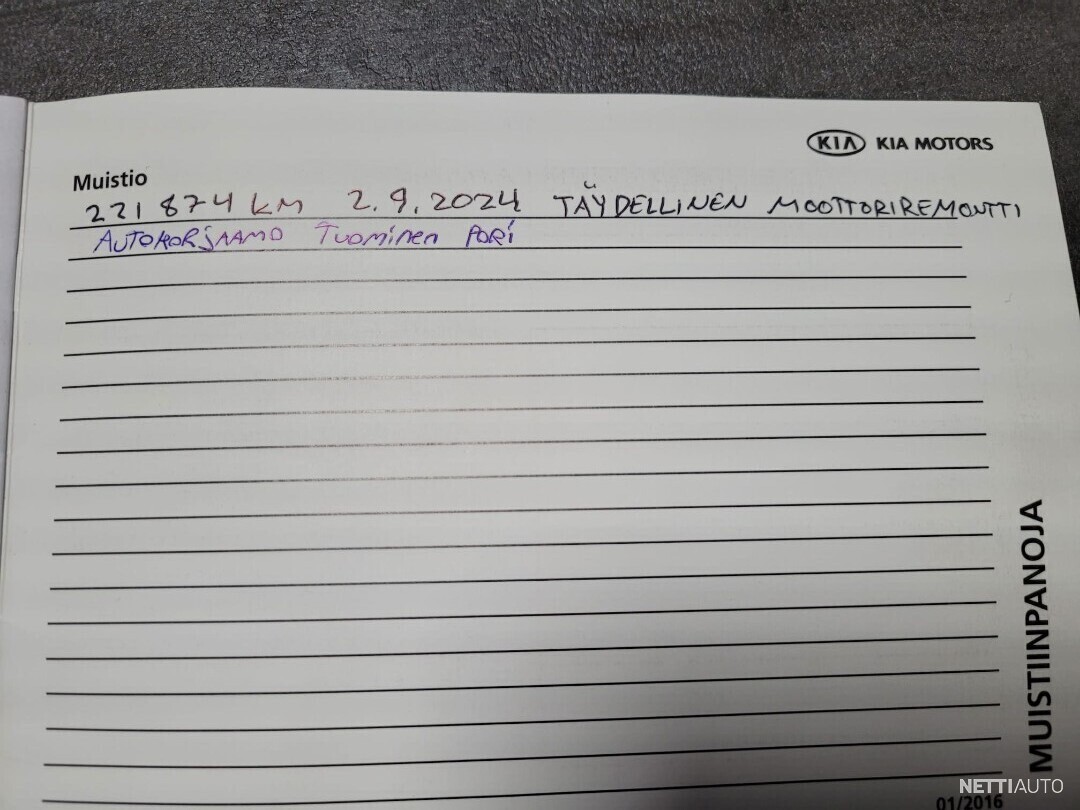 KIA KIA MOTORS
Muistio
221 874 KM 2.9.2024 TÄYDELLINEN MOOTTORIREMONTTI
AUTOKORJAAMO TUOMINEN PORI
MUISTIINPANOJA
01/2016
NETTIAUTO